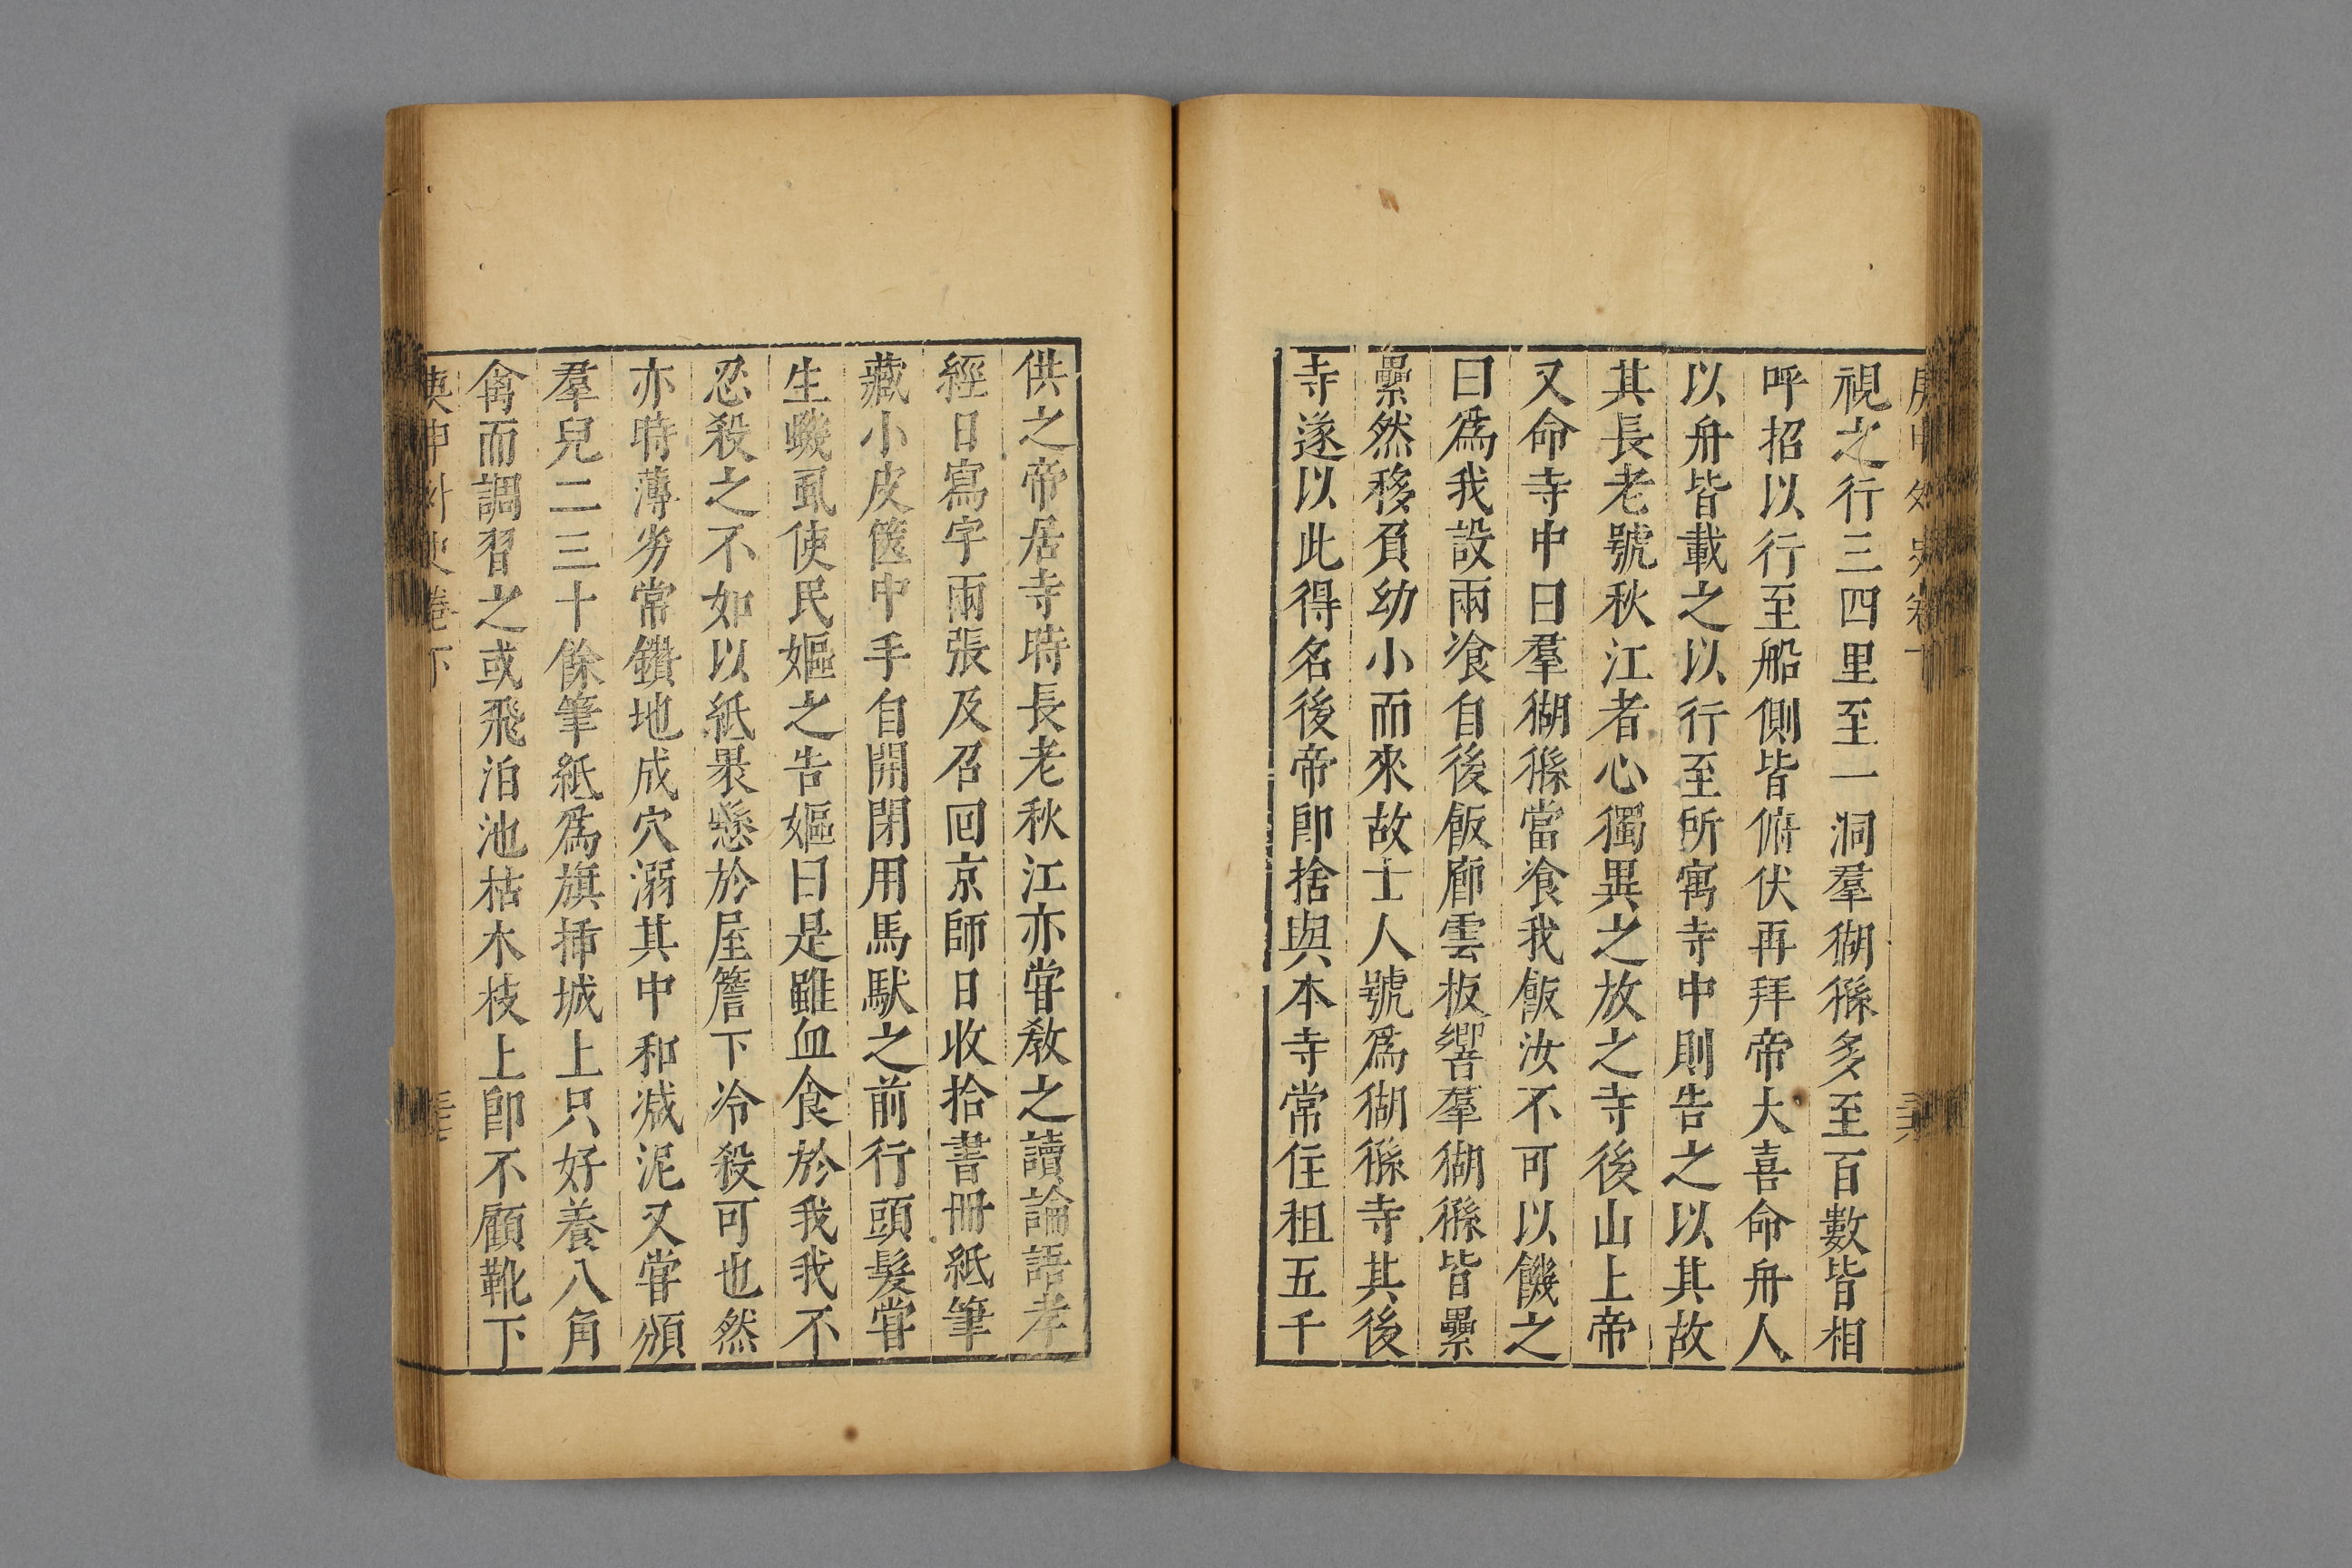 庚申外史卷下
三六
視之行三四里至一洞羣猢猻多至百數皆相
呼招以行至船側皆俯伏再拜帝大喜命舟人
以舟皆載之以行至所寓寺中則告之以其故
其長老號秋江者心獨異之放之寺後山上帝
又命寺中曰羣猢猻當飡我飯汝不可以饑之
曰爲我設兩飡自後飯廊雲板響羣猢猻皆纍
纍然移負幼小而來故士人號爲猢猻寺其後
寺遂以此得名後帝卽捨與本寺常住租五千
供之帝居寺時長老秋江亦甞敎之讀論語孝
經日寫字兩張及召回京師日收拾書冊紙筆
藏小皮篋中手自開閉用馬馱之前行頭髮甞
生蟣虱使民嫗之告嫗曰是雖血食於我我不
忍殺之不如以紙裹懸於屋簷下冷殺可也然
亦時薄劣常鑽地成穴溺其中和減泥又甞頒
羣兒二三十餘筆紙爲旗揷城上只好養八角
禽而調習之或飛泊池枯木枝上卽不顧靴下
庚申外史卷下